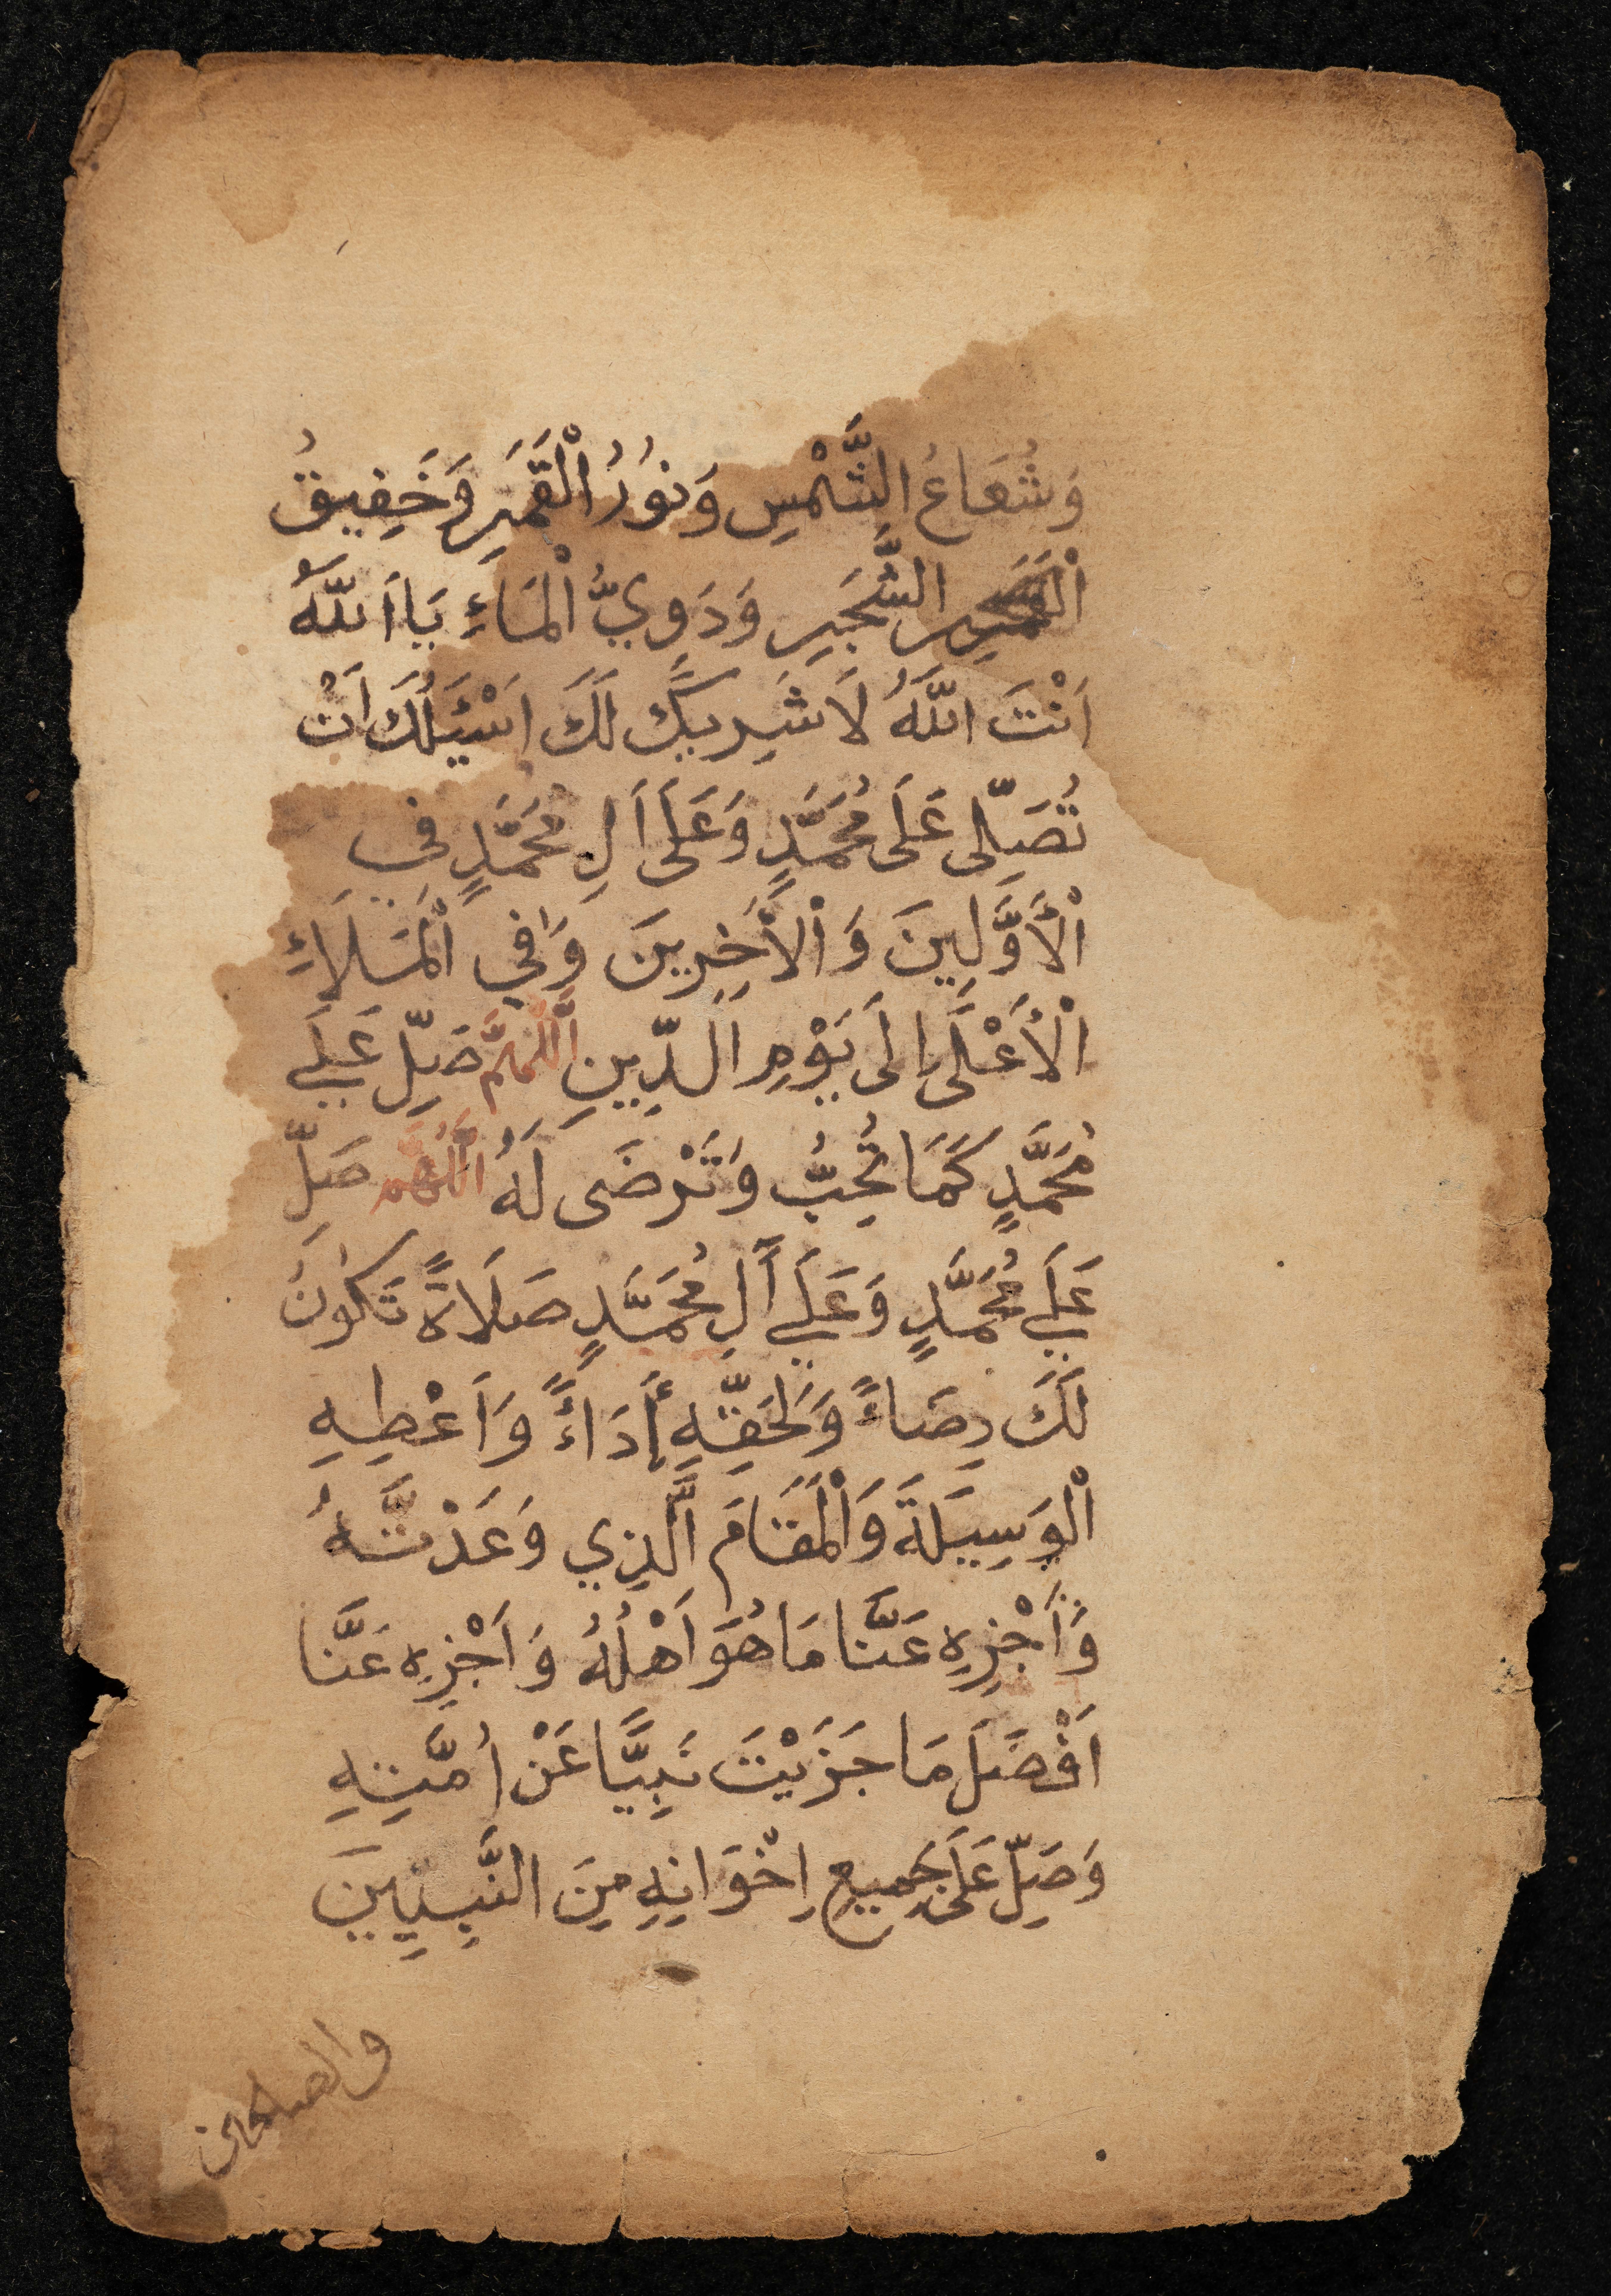 وَشُعَاعُ الشَّمْسِ وَنُورُ الْقَمَرِ وَخَفِيقُ
الشَّجَرِ وَدَوِيُّ الْمَاءِ يَا اَللَّهُ
اَنْتَ اللَّهُ لَا شَرِيكَ لَكَ اَسْئَلُكَ اَنْ
تُصَلِّى عَلَى مُحَمَّدٍ وَعَلَى اَلِ مُحَمَّدٍ فِي
الْأَوَّلِينَ وَالْأَخِرِينَ وَفِي الْمَلَاءِ
الْأَعْلَى اِلَى يَوْمِ الدِّينِ اَللّٰهُمَّ صَلِّ عَلَي
مُحَمَّدٍ كَمَا تُحِبُّ وَتَرْضَى لَهُ اَللّٰهُمَّ صَلِّ
عَلَي مُحَمَّدٍ وَعَلَي اَلِ مُحَمَّدٍ صَلَاةً تَكُونُ
لَكَ رِضَاءً وَلِحَقِّهِ أَدَاءً وَاَعْطِهِ
الْوَسِيلَةَ وَالْمَقَامَ الَّذِي وَعَدْتَّهُ
وَاَجْزِهِ عَنَّا مَا هُوَ اَهْلُهُ وَاَجْزِهِ عَنَّا
اَفْضَلَ مَا جَزَيْتَ نَبِيًّا عَنْ اُمَّتِهِ
وَصَلِّ عَلَى جَمِيعِ اِخْوَانِهِ مِنَ النَّبِيِينَ
والصالحين